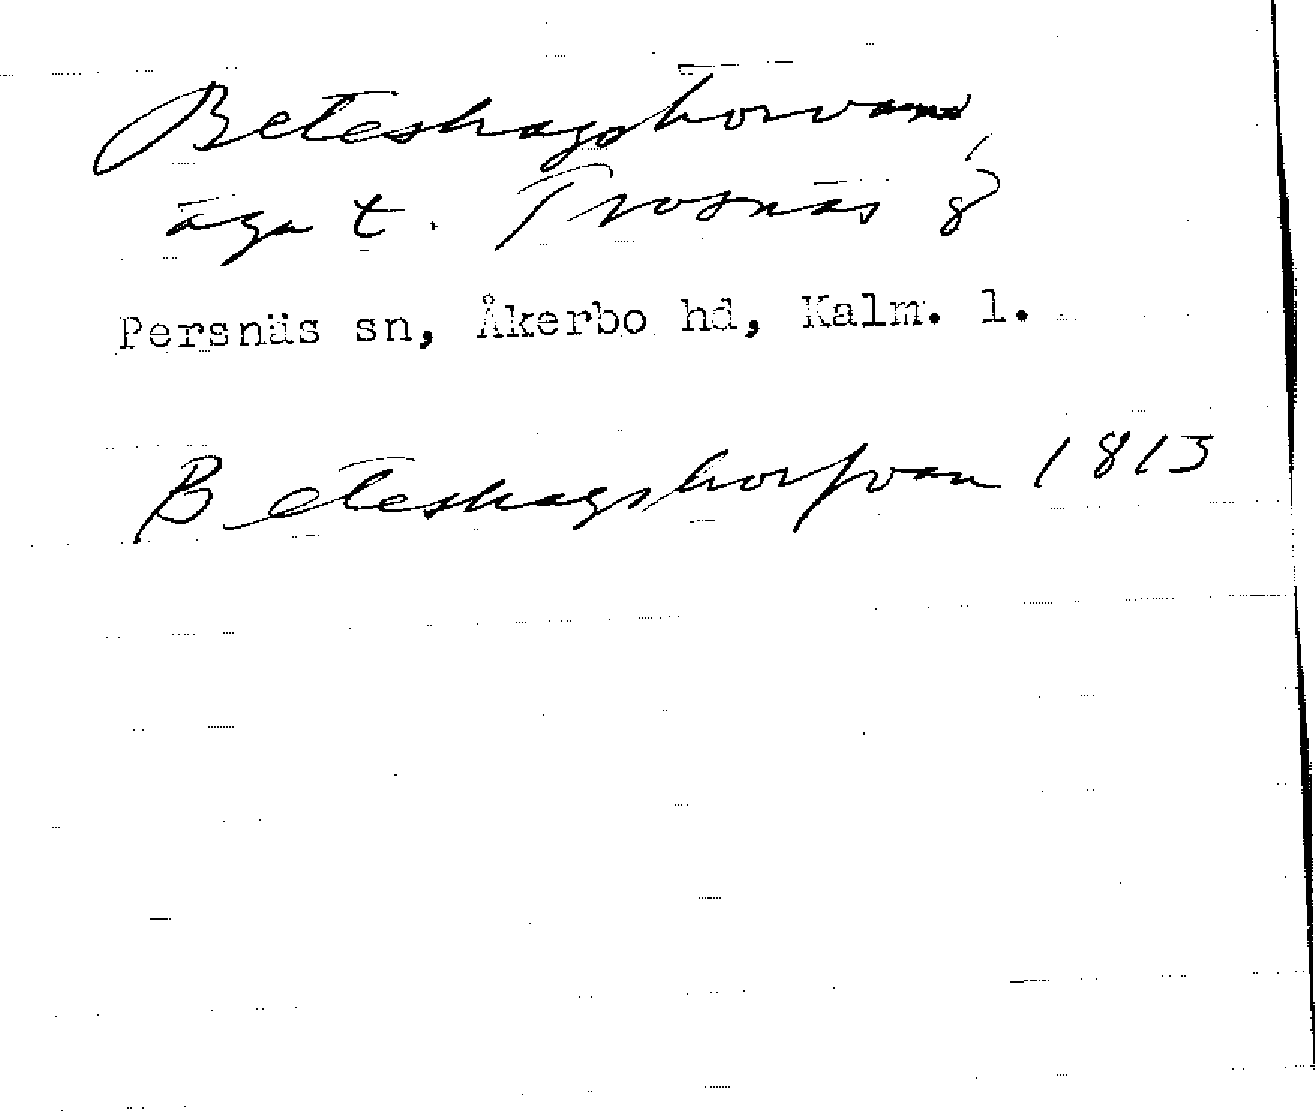 Beteshagshorvan,
äga t. Trosnäs 8
Persnäs sn, Åkerbo hd, Kalm. l.
Beteshagshorfvan 1813